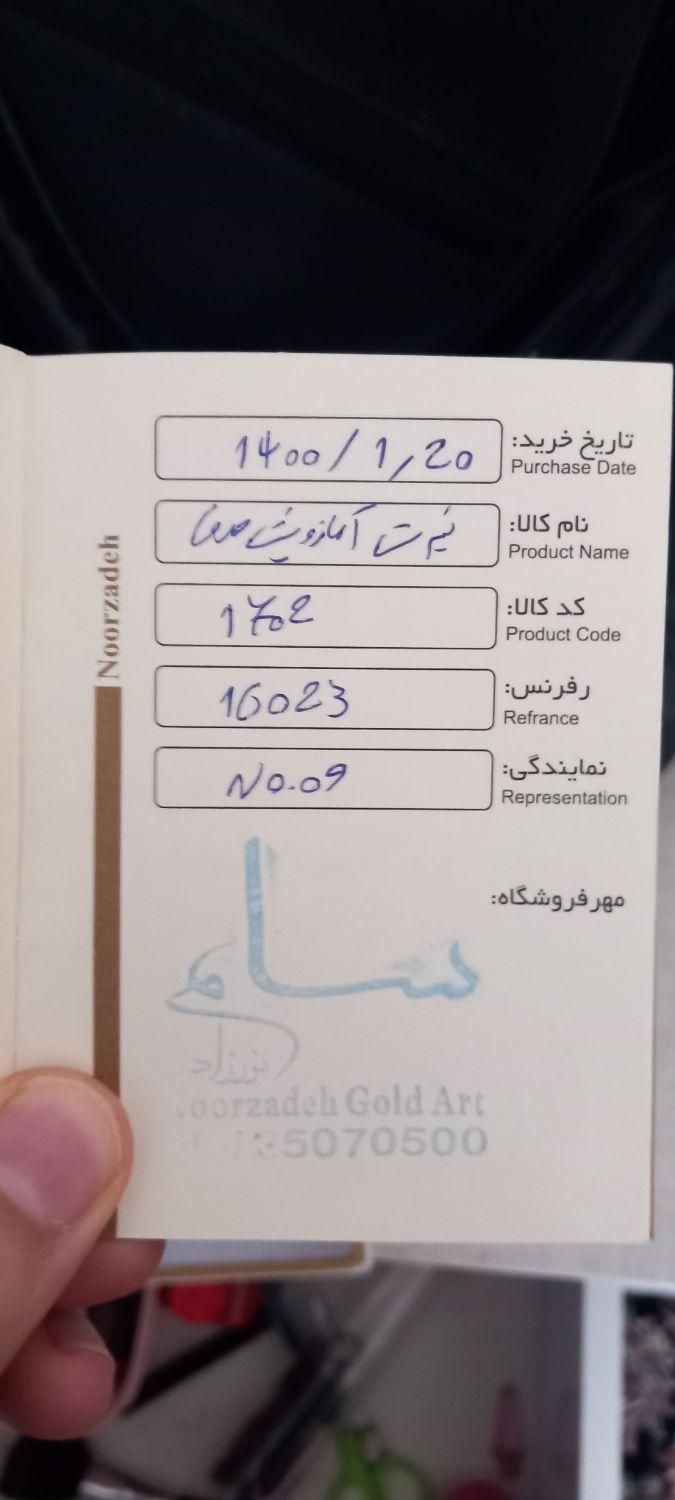 تاریخ خرید: 1400/1/20
Purchase Date
نام کالا: نیم ست آمازونیت صدف
Product Name
کد کالا: 1702
Product Code
رفرنس: 16023
Refrance
نمایندگی: No.09
Representation
Noorzadeh
مهر فروشگاه:
سام
Noorzadeh Gold Art
5070500